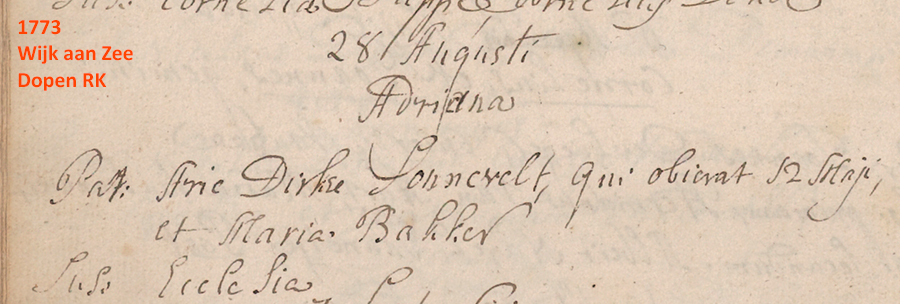 1773
Wijk aan Zee
Dopen RK
Sus. Cornelia
28 Augusti
Adriana
Pat: Arie Dirkse Sonnevelt, qui obierat 12 Maji,
et Maria Bakker
Sus. Ecclesia